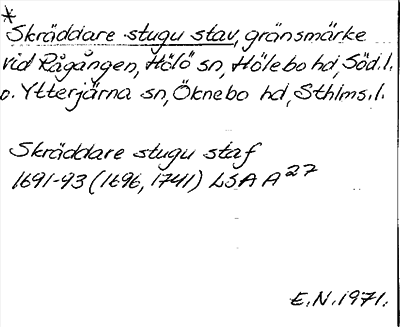 *
Skräddare stugu stav, gränsmärke
vid Rågången, Hölö sn, Hölebo hd, Söd. l.
o. Ytterjärna sn, Öknebo hd, Sthlms. l.
Skräddare stugu staf
1691-93 (1696, 1741) LSA A 27
E. N. 1971.